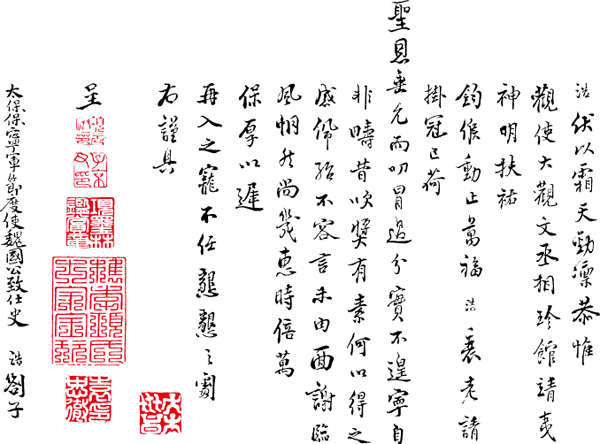 浩 伏以霜天勁凜恭惟
觀使大觀文丞相珍館靖
神明扶祐
鈞候動止萬福 浩 衰老請
掛冠已荷
聖恩垂允而叨冒過分實不遑寧自
非疇昔吹獎有素何以得之
感佩殆不容言未由面謝臨
風惘然尚幾惠時倍萬
保厚以遲
再入之寵不任懇懇之
右謹具
呈
太保保寧軍節度使魏國公致仕史 浩 劄子